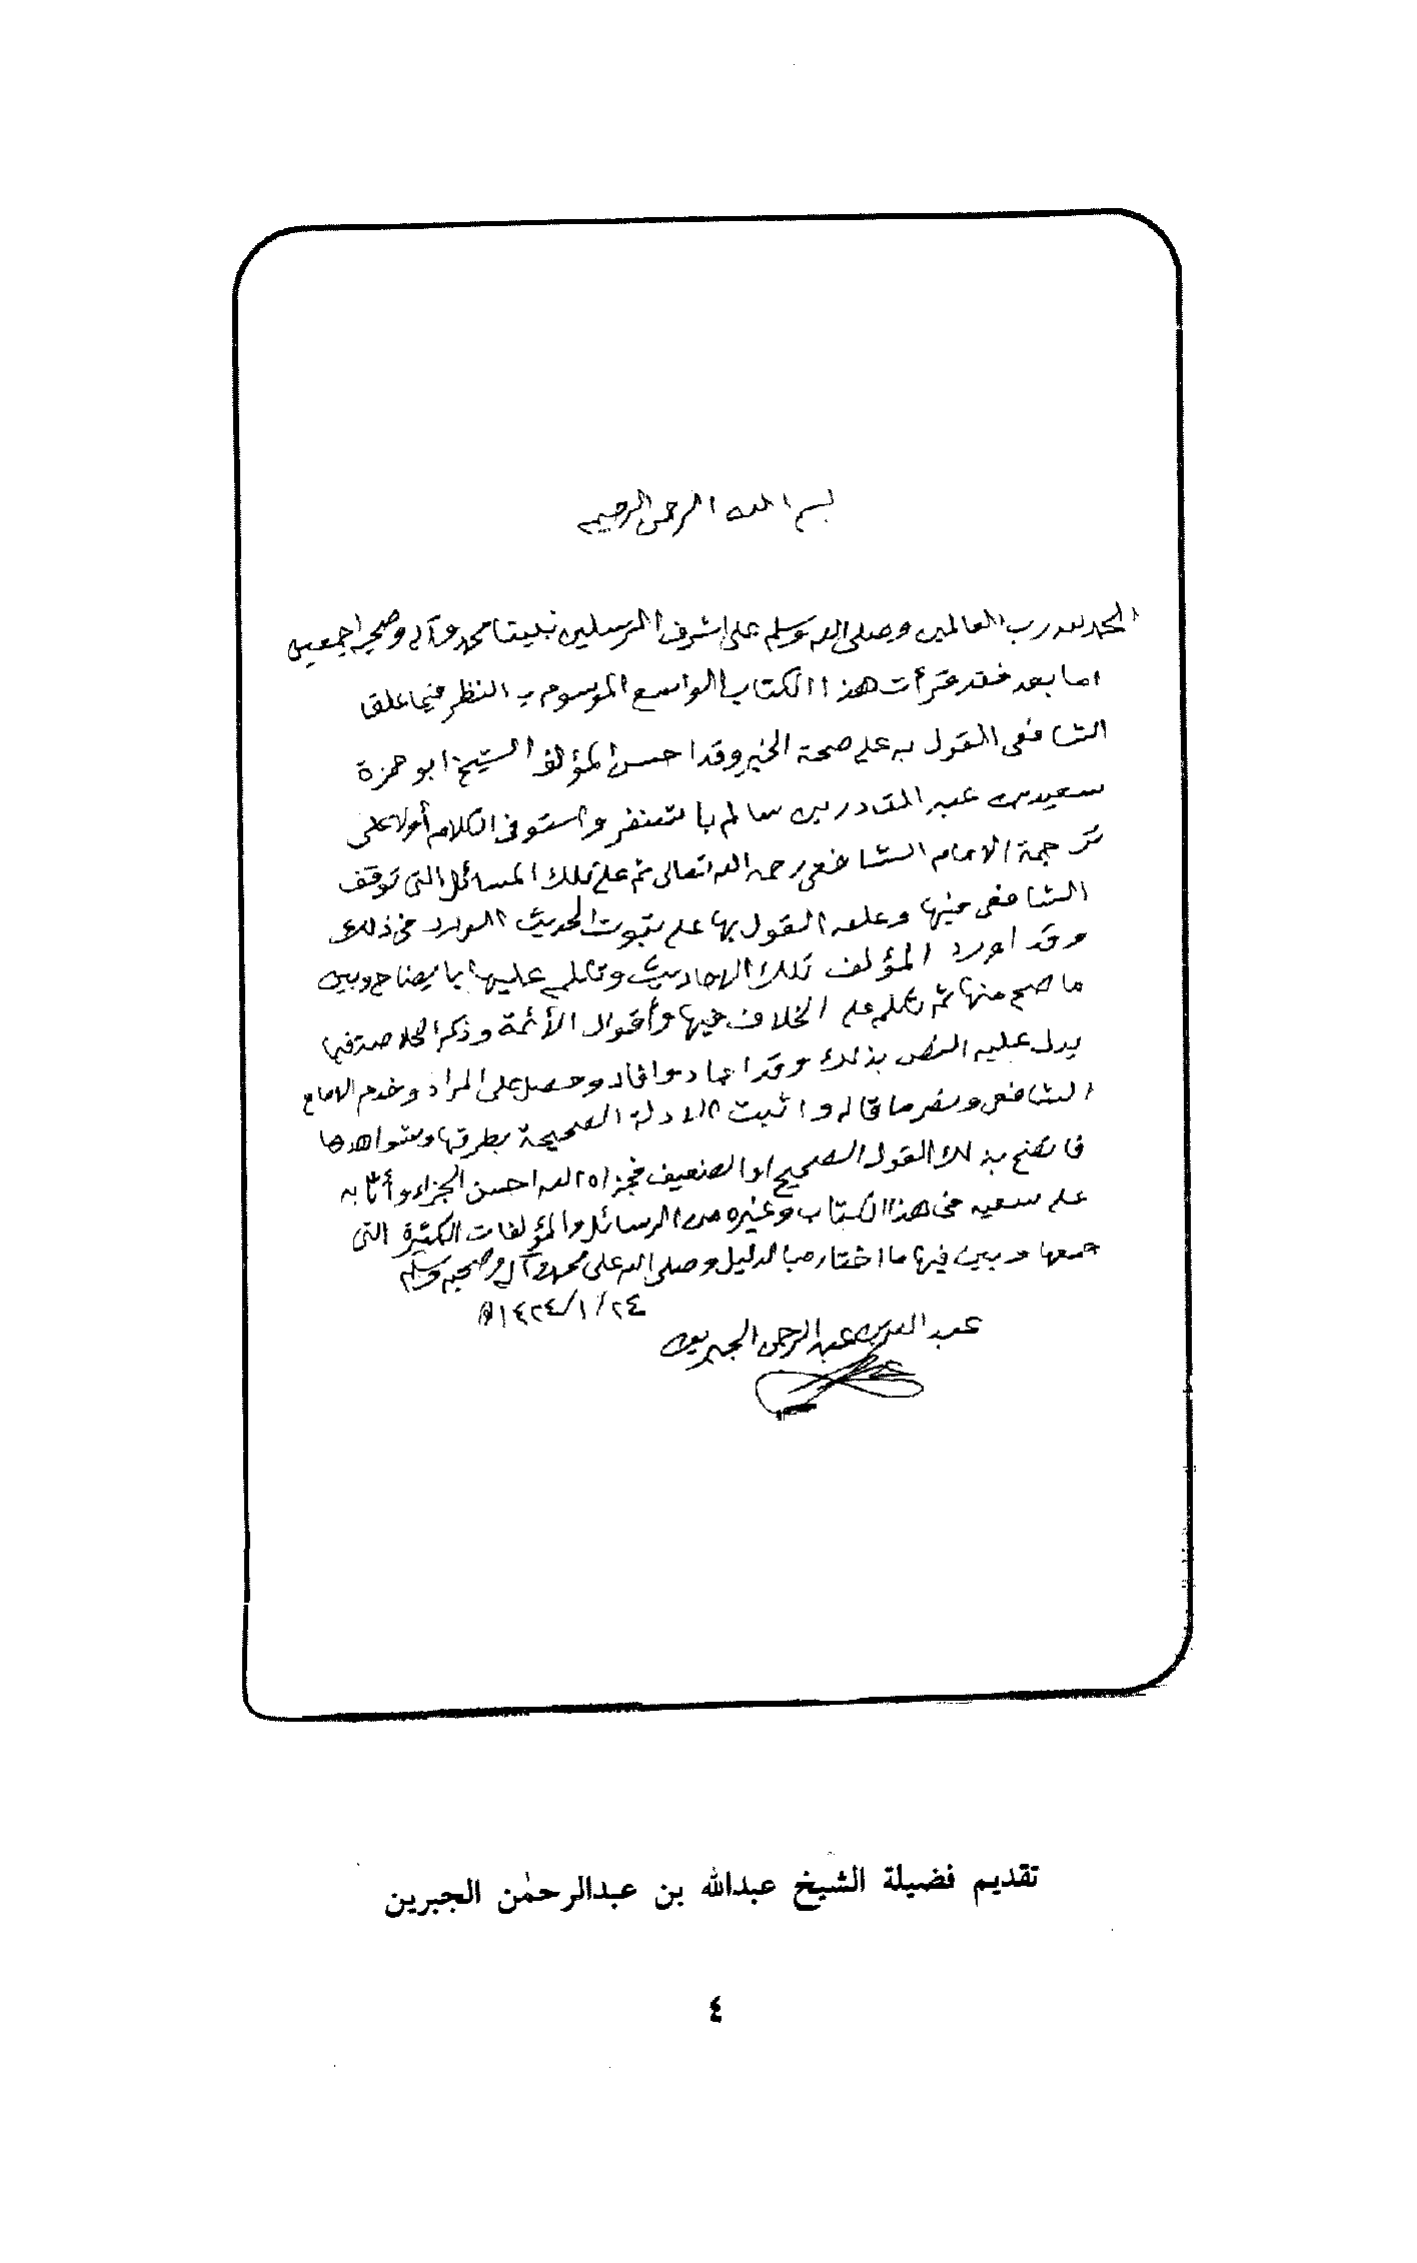 بسم الله الرحمن الرحيم
الحمد لله رب العالمين وصلى الله وسلم على اشرف المرسلين نبينا محمد وآله وصحبه اجمعين
اما بعد فقد قرأت هذا الكتاب الواسع الموسوم بـ النظر فيما علق
الشافعي القول به على صحة الخبر وقد احسن المؤلف الشيخ ابو حمزة
سعيد بن عبد القادر بن سالم باشنفر واستوفى الكلام أولا على
ترجمة الامام الشافعي رحمه الله تعالى ثم على تلك المسائل التي توقف
الشافعي فيها وعلق القول بها على ثبوت الحديث الوارد في ذلك
وقد اورد المؤلف تلك الاحاديث وتكلم عليها بايضاح وبين
ما صح منها ثم تكلم على الخلاف فيها وأقوال الأئمة وذكر الخلاصة فيما
يدل عليه النص بذلك وقد اجاد وافاد وحصل على المراد وخدم الامام
الشافعي ونصر ما قاله واثبت الادلة الصحيحة بطرقها وشواهدها
فاتضح بذلك القول الصحيح او الضعيف فجزاه الله احسن الجزاء وأثابه
على سعيه في هذا الكتاب وغيره من الرسائل والمؤلفات الكثيرة التي
جمعها وبين فيها ما اختاره بالدليل وصلى الله على محمد وآله وصحبه وسلم
٢٤/١/١٤٢٤هـ
عبد الله بن عبد الرحمن الجبرين
تقديم فضيلة الشيخ عبدالله بن عبدالرحمٰن الجبرين
٤